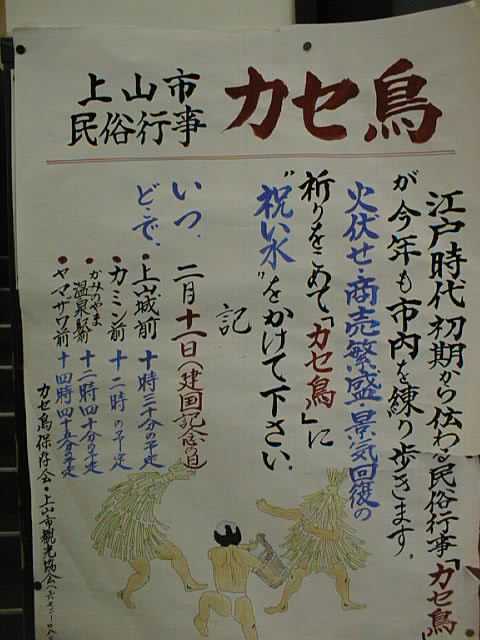 上山市
民俗行事
カセ鳥
江戸時代初期から伝わる民俗行事「カセ鳥
が今年も市内を練り歩きます。
火伏せ・商売繁盛・景気回復の
祈りをこめて「カセ鳥」に
"祝い水"をかけて下さい。
記
いつ、二月十一日(建国記念の日)
どこで、
・上山城前 十時三十分の予定
・カミン前 十二時の予定
・かみのやま温泉駅前 十二時四十分の予定
・ヤマザワ前 十四時四十五分の予定
カセ鳥保存会・上山市観光協会